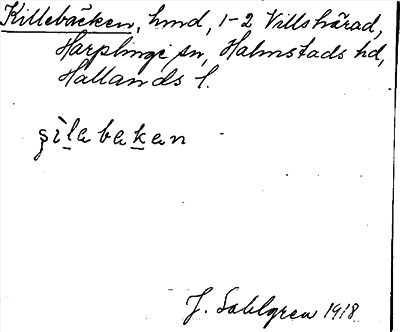 Killebäcken, hmd, 1-2 Villshärad,
Harplinge sn, Halmstads hd,
Hallands l.
şìlabekan
J. Sahlgren 1918